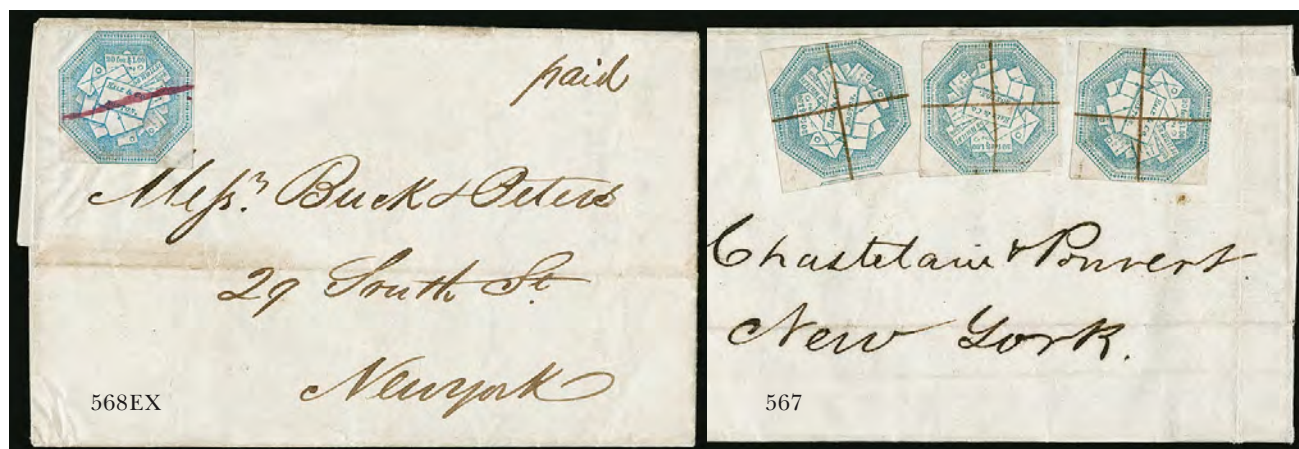 paid
Messrs. Buck & Peters
29 South St.
Newyork
568EX
HALE & Co.
Chastelain & Ponvert.
New York.
567